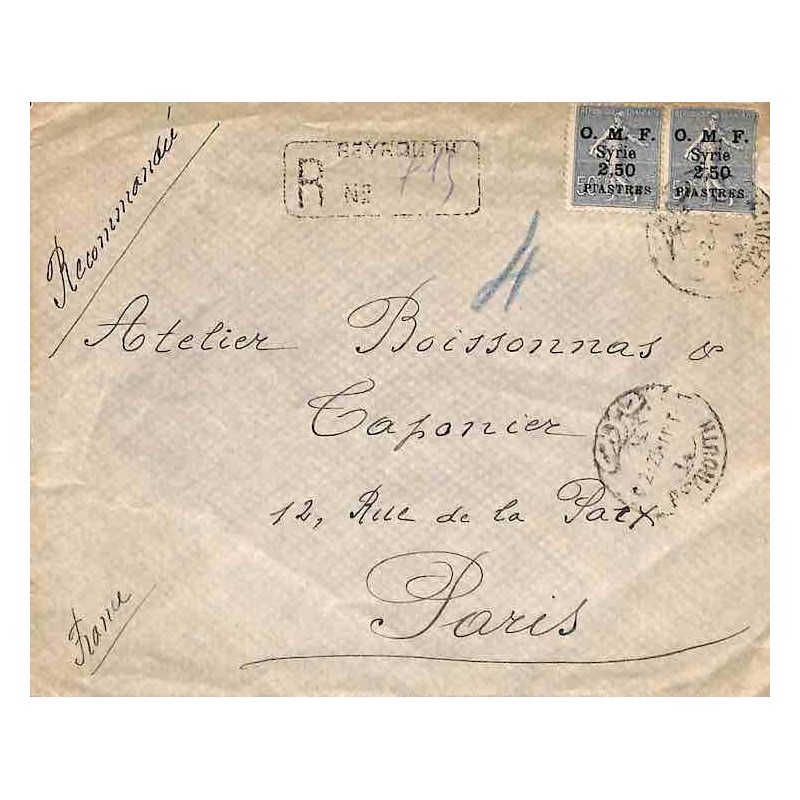 Recommandée
BEYROUTH
R
No 715
O. M. F.
Syrie
2,50
PIASTRES
50
O. M. F.
Syrie
2,50
PIASTRES
4
Atelier Boissonnas &
Taponier
12, Rue de la Paix
Paris
France